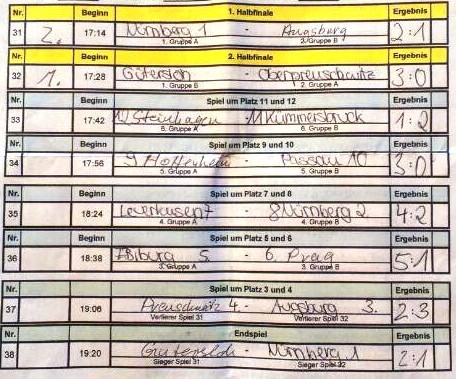 Nr. Beginn 1. Halbfinale Ergebnis
31 2. 17:14 Nürnberg 1 - Augsburg 2:1
1. Gruppe A 2. Gruppe B
Nr. Beginn 2. Halbfinale Ergebnis
32 1. 17:28 Gütersloh - Oberpreuschwitz 3:0
1. Gruppe B 2. Gruppe A
Nr. Beginn Spiel um Platz 11 und 12 Ergebnis
33 17:42 Steinhagen - 11 Kümmersbruck 1:2
6. Gruppe A 6. Gruppe B
Nr. Beginn Spiel um Platz 9 und 10 Ergebnis
34 17:56 9 Hoffenheim - Passau 10 3:0
5. Gruppe A 5. Gruppe B
Nr. Beginn Spiel um Platz 7 und 8 Ergebnis
35 18:24 Leverkusen 7 - 8 Nürnberg 2 4:2
4. Gruppe A 4. Gruppe B
Nr. Beginn Spiel um Platz 5 und 6 Ergebnis
36 18:38 Biburg 5. - 6. Prag 5:1
3. Gruppe A 3. Gruppe B
Nr. Beginn Spiel um Platz 3 und 4 Ergebnis
37 19:06 4. - Augsburg 3. 2:3
Verlierer Spiel 31 Verlierer Spiel 32
Nr. Beginn Endspiel Ergebnis
38 19:20 Gütersloh - Nürnberg 1 2:1
Sieger Spiel 31 Sieger Spiel 32